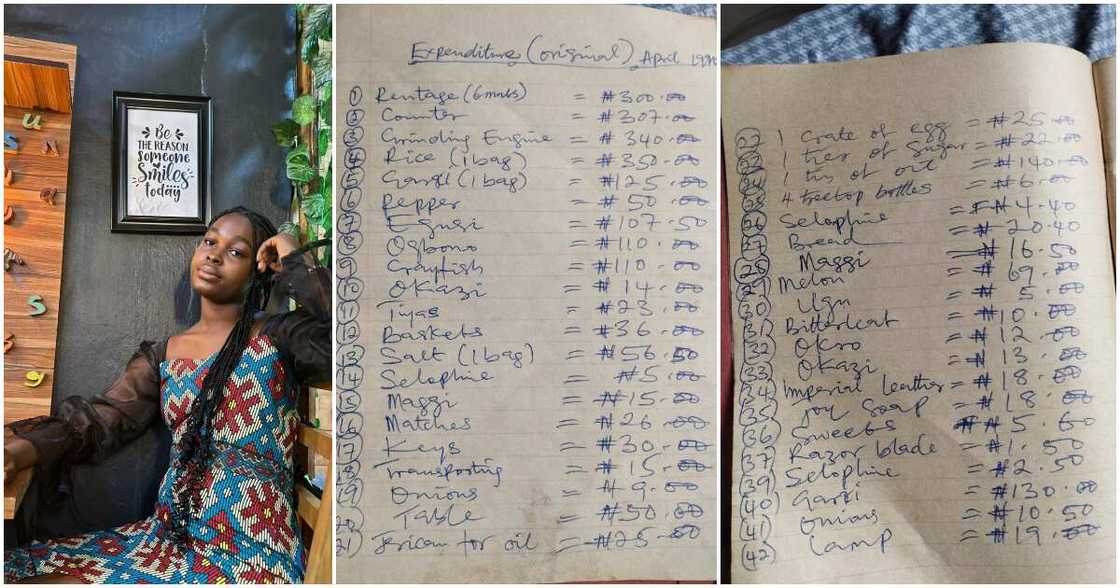 Be
THE REASON
Someone
Smiles
today
Expenditure (original) April
① Rentage (6mnths) = ₦300.00
② Counter = ₦307.00
③ Grinding Engine = ₦340.00
④ Rice (1bag) = ₦350.00
⑤ Garri (1bag) = ₦125.00
6 Pepper = ₦50.00
7 Egusi = ₦107.50
8 Ogbono = ₦110.00
9 Crayfish = ₦110.00
10 Okazi = ₦14.00
11 Tyas = ₦23.00
12 Baskets = ₦36.00
13 Salt (1bag) = ₦56.50
14 Selophine = ₦5.00
15 Maggi = ₦15.00
16 Matches = ₦26.00
17 Keys = ₦30.00
18 Transporting = ₦15.00
19 Onions = ₦9.00
20 Table = ₦50.00
21) Jerican for oil = ₦25.00
22 1 Crate of egg = ₦25.00
23 1 tres of Sugar = ₦22.00
24 1 tin of oil = ₦140.00
25 4 treetop bottles = ₦6.00
26 Selophine = ₦4.40
27 Bread = ₦20.40
28 Maggi = ₦16.50
29 Melon = ₦69.00
30 Ugu = ₦5.00
31 Bitterleaf = ₦10.00
32 Okro = ₦12.00
33 Okazi = ₦13.00
34 Imperial leather = ₦18.00
35 Joy Soap = ₦18.00
36 Sweets = ₦5.60
37 Razor blade = ₦1.50
39 Selophine = ₦2.50
40 Garri = ₦130.00
41 Onions = ₦10.50
42 Lamp = ₦19.00